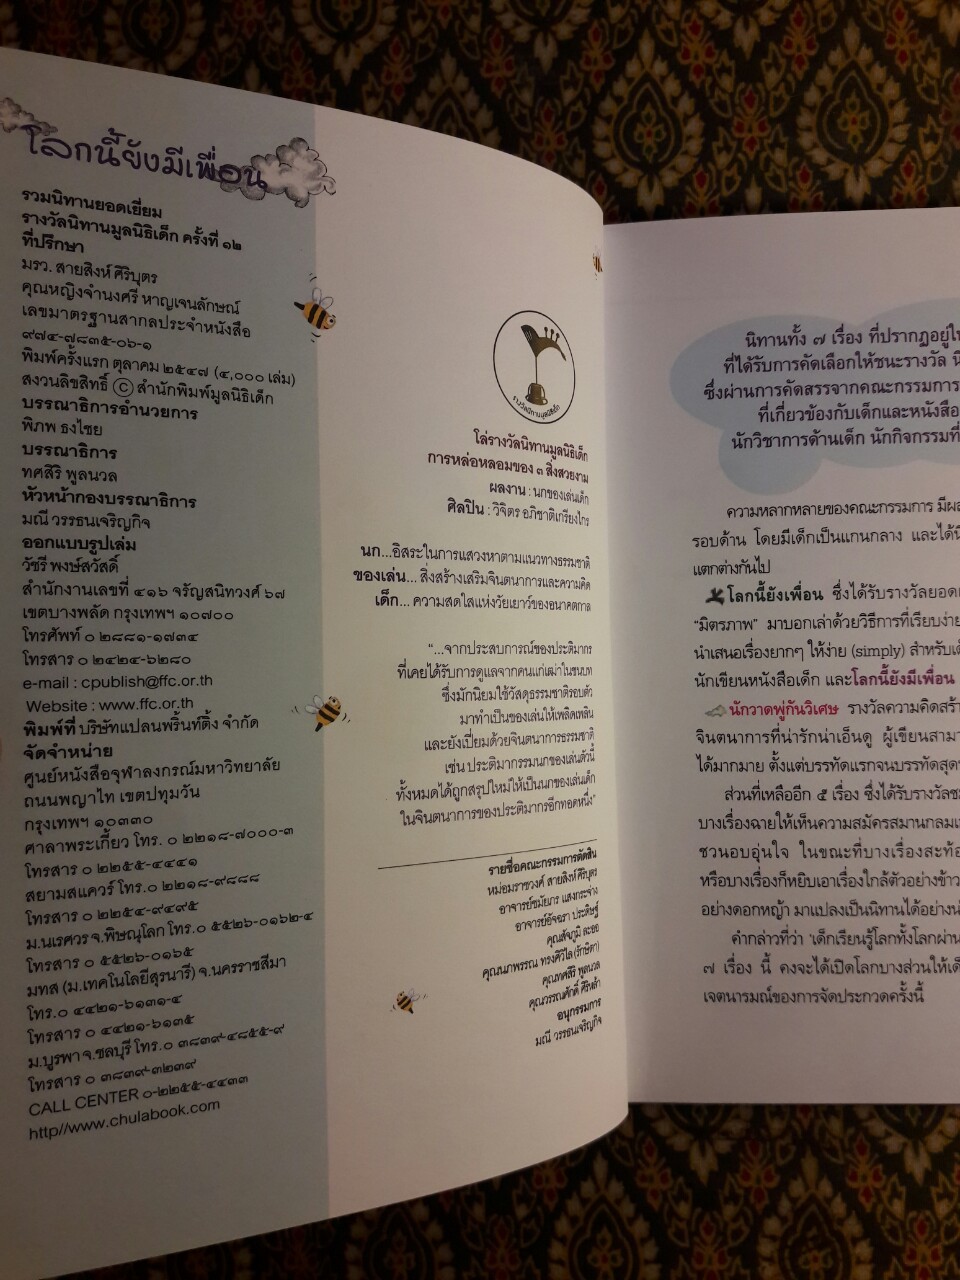 โลกนี้ยังมีเพื่อน
รวมนิทานยอดเยี่ยม
รางวัลนิทานมูลนิธิเด็ก ครั้งที่ ๑๒
ที่ปรึกษา
มรว. สายสิงห์ ศิริบุตร
คุณหญิงจำนงศรี หาญเจนลักษณ์
เลขมาตรฐานสากลประจำหนังสือ
๙๗๔-๗๘๓๕-๐๖-๑
พิมพ์ครั้งแรก ตุลาคม ๒๕๔๗ (๔,๐๐๐ เล่ม)
สงวนลิขสิทธิ์ © สำนักพิมพ์มูลนิธิเด็ก
บรรณาธิการอำนวยการ
พิภพ ธงไชย
บรรณาธิการ
ทศสิริ พูลนวล
หัวหน้ากองบรรณาธิการ
มณี วรรธนเจริญกิจ
ออกแบบรูปเล่ม
วัชรี พงษ์สวัสดิ์
สำนักงานเลขที่ ๔๑๖ จรัญสนิทวงศ์ ๖๗
เขตบางพลัด กรุงเทพฯ ๑๐๗๐๐
โทรศัพท์ ๐ ๒๘๘๑-๑๗๓๔
โทรสาร ๐ ๒๔๒๔-๖๒๘๐
e-mail : cpublish@ffc.or.th
Website : www.ffc.or.th
พิมพ์ที่ บริษัทแปลนพริ้นท์ติ้ง จำกัด
จัดจำหน่าย
ศูนย์หนังสือจุฬาลงกรณ์มหาวิทยาลัย
ถนนพญาไท เขตปทุมวัน
กรุงเทพฯ ๑๐๓๓๐
ศาลาพระเกี้ยว โทร. ๐ ๒๒๑๘-๗๐๐๐-๓
โทรสาร ๐ ๒๒๕๕-๔๔๔๑
สยามสแควร์ โทร.๐ ๒๒๑๘-๙๘๘๘
โทรสาร ๐ ๒๒๕๔-๙๔๙๕
ม.นเรศวร จ.พิษณุโลก โทร.๐ ๕๕๒๖-๐๑๖๒-๔
โทรสาร ๐ ๕๕๒๖-๐๑๖๕
มทส (ม.เทคโนโลยีสุรนารี) จ.นครราชสีมา
โทร.๐ ๔๔๒๑-๖๑๓๑-๔
โทรสาร ๐ ๔๔๒๑-๖๑๓๕
ม.บูรพา จ.ชลบุรี โทร.๐ ๓๘๓๙-๔๘๕๕-๙
โทรสาร ๐ ๓๘๓๙-๓๒๓๙
CALL CENTER ๐-๒๒๕๕-๔๔๓๓
http//www.chulabook.com
รางวัลนิทานมูลนิธิเด็ก
โล่รางวัลนิทานมูลนิธิเด็ก
การหล่อหลอมของ ๓ สิ่งสวยงาม
ผลงาน : นกของเล่นเด็ก
ศิลปิน : วิจิตร อภิชาติเกรียงไกร
นก...อิสระในการแสวงหาตามแนวทางธรรมชาติ
ของเล่น... สิ่งสร้างเสริมจินตนาการและความคิด
เด็ก... ความสดใสแห่งวัยเยาว์ของอนาคตกาล
"...จากประสบการณ์ของประติมากร
ที่เคยได้รับการดูแลจากคนแก่เฒ่าในชนบท
ซึ่งมักนิยมใช้วัสดุธรรมชาติรอบตัว
มาทำเป็นของเล่นให้เพลิดเพลิน
และยังเปี่ยมด้วยจินตนาการธรรมชาติ
เช่น ประติมากรรมนกของเล่นตัวนี้
ทั้งหมดได้ถูกสรุปใหม่ให้เป็นนกของเล่นเด็ก
ในจินตนาการของประติมากรอีกทอดหนึ่ง"
รายชื่อคณะกรรมการตัดสิน
หม่อมราชวงศ์ สายสิงห์ ศิริบุตร
อาจารย์ชมัยภร แสงกระจ่าง
อาจารย์อัจฉรา ประดิษฐ์
คุณสัจภูมิ ละออ
คุณนภาพรรณ ทรงศิวิไล (รักษิตา)
คุณทศสิริ พูลนวล
คุณวรรณศักดิ์ ศิริหล้า
อนุกรรมการ
มณี วรรธนเจริญกิจ
นิทานทั้ง ๗ เรื่อง ที่ปรากฏอยู่ใน
ที่ได้รับการคัดเลือกให้ชนะรางวัล
ซึ่งผ่านการคัดสรรจากคณะกรรมการ
ที่เกี่ยวข้องกับเด็กและหนังสือ
นักวิชาการด้านเด็ก นักกิจกรรมที่
ความหลากหลายของคณะกรรมการ มีผล
รอบด้าน โดยมีเด็กเป็นแกนกลาง และได้
แตกต่างกันไป
โลกนี้ยังมีเพื่อน ซึ่งได้รับรางวัลยอด
"มิตรภาพ" มาบอกเล่าด้วยวิธีการที่เรียบง่าย
นำเสนอเรื่องยากๆ ให้ง่าย (simply) สำหรับ
นักเขียนหนังสือเด็ก และโลกนี้ยังมีเพื่อน
นักวาดพู่กันวิเศษ รางวัลความคิดสร้า
จินตนาการที่น่ารักน่าเอ็นดู ผู้เขียนสามา
ได้มากมาย ตั้งแต่บรรทัดแรกจนบรรทัดสุด
ส่วนที่เหลืออีก ๕ เรื่อง ซึ่งได้รับรางวัลชม
บางเรื่องฉายให้เห็นความสมัครสมานกลม
ชวนอบอุ่นใจ ในขณะที่บางเรื่องสะท้อ
หรือบางเรื่องก็หยิบเอาเรื่องใกล้ตัวอย่างข้าว
อย่างดอกหญ้า มาแปลงเป็นนิทานได้อย่าง
คำกล่าวที่ว่า 'เด็กเรียนรู้โลกทั้งโลกผ่าน
๗ เรื่อง นี้ คงจะได้เปิดโลกบางส่วนให้
เจตนารมณ์ของการจัดประกวดครั้งนี้